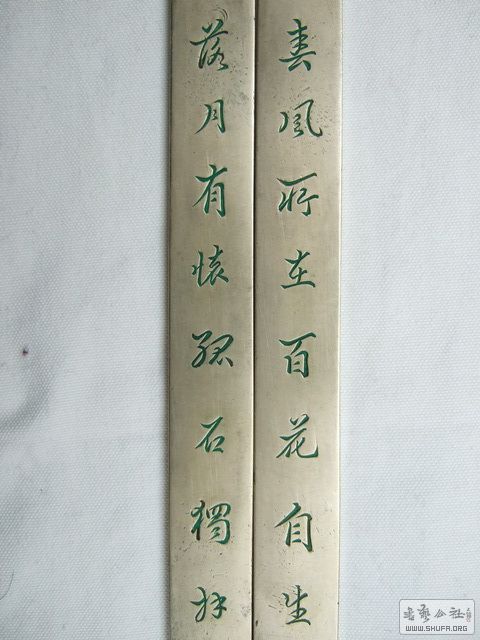 春風所在百花自生
落月有懷孤石獨拜
書藝公社
WWW.SHUFA.ORG